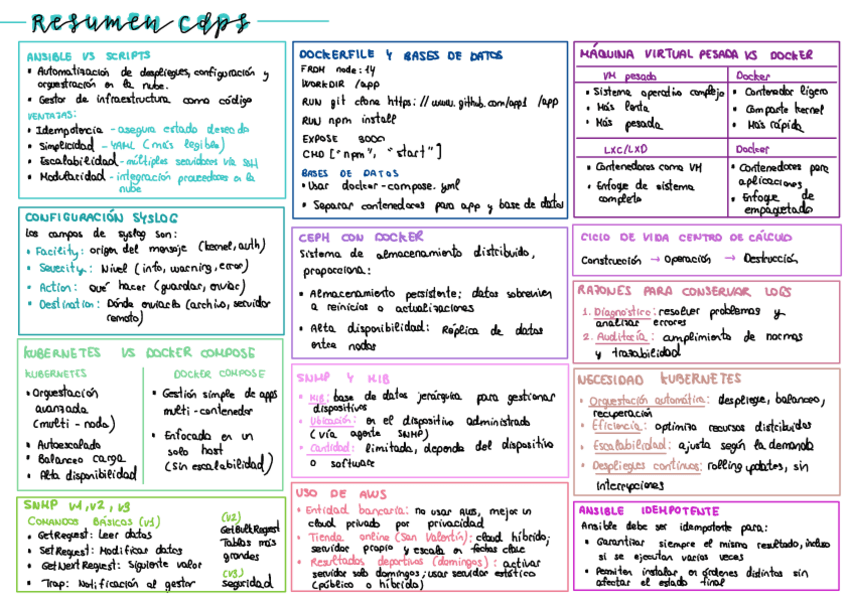 Resumen cdps
ANSIBLE VS SCRIPTS
• Automatización de despliegues, configuración y
orquestración en la nube.
• Gestor de infraestructura como código
VENTAJAS:
• Idempotencia - asegura estado deseado
• Simplicidad - YAML (más legible)
• Escalabilidad - múltiples servidores vía SSH
• Modularidad - integración proveedores en la
nube
CONFIGURACIÓN SYSLOG
Los campos de syslog son:
• Facility: origen del mensaje (kernel, auth)
• Severity: Nivel (info, warning, error)
• Action: qué hacer (guardar, enviar)
• Destination: Dónde enviarlo (archivo, servidor
remoto)
KUBERNETES VS DOCKER COMPOSE
KUBERNETES
• Orquestación
avanzada
(multi-nodo)
• Autoescalado
• Balanceo carga
• Alta disponibilidad
DOCKER COMPOSE
• Gestión simple de apps
multi-contenedor
• Enfocada en un
solo host
(sin escalabilidad)
SNMP v1, v2, v3
COMANDOS BÁSICOS (v1)
• GetRequest: Leer datos
• SetRequest: Modificar datos
• GetNextRequest: Siguiente valor
• Trap: Notificación al gestor
(v2)
GetBulkRequest
Tablas más
grandes
(v3)
Seguridad
DOCKERFILE Y BASES DE DATOS
FROM node:14
WORKDIR /app
RUN git clone https://www.github.com/app1 /app
RUN npm install
EXPOSE 3000
CMD ["npm", "start"]
BASES DE DATOS
• Usar docker-compose.yml
• Separar contenedores para app y base de datos
CEPH CON DOCKER
Sistema de almacenamiento distribuido,
proporciona:
• Almacenamiento persistente: datos sobreviven
a reinicios o actualizaciones
• Alta disponibilidad: Réplica de datos
entre nodos
SNMP Y MIB
• MIB: base de datos jerárquica para gestionar
dispositivos
• Ubicación: en el dispositivo administrado
(vía agente SNMP)
• Cantidad: limitada, depende del dispositivo
o software
USO DE AWS
• Entidad bancaria: no usar AWS, mejor un
cloud privado por privacidad
• Tienda online (San Valentín): cloud híbrido;
servidor propio y escala en fechas clave
• Resultados deportivos (domingos): activar
servidor solo domingos; usar servidor estático
(público o híbrido)
MÁQUINA VIRTUAL PESADA VS DOCKER
VM pesada
• Sistema operativo complejo
• Más lenta
• Más pesada
Docker
• Contenedor ligero
• Comparte kernel
• Más rápida
LXC/LXD
• Contenedores como VM
• Enfoque de sistema
completo
Docker
• Contenedores para
aplicaciones
• Enfoque de
empaquetado
CICLO DE VIDA CENTRO DE CÁLCULO
Construcción → Operación → Destrucción
RAZONES PARA CONSERVAR LOGS
1. Diagnóstico: resolver problemas y
analizar errores
2. Auditoría: cumplimiento de normas
y trazabilidad
NECESIDAD KUBERNETES
• Orquestación automática: despliegue, balanceo,
recuperación
• Eficiencia: optimiza recursos distribuidos
• Escalabilidad: ajusta según la demanda
• Despliegues continuos: rolling updates, sin
interrupciones
ANSIBLE IDEMPOTENTE
Ansible debe ser idempotente para:
• Garantizar siempre el mismo resultado, incluso
si se ejecutan varias veces
• Permiten instalar en órdenes distintos sin
afectar el estado final